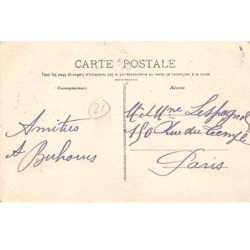 CARTE POSTALE
Tous les pays étrangers n'acceptent pas la correspondance au recto, se renseigner à la poste
Correspondance
Adresse
Amitiés
21
Lespagnol
150 Rue du Temple
Paris